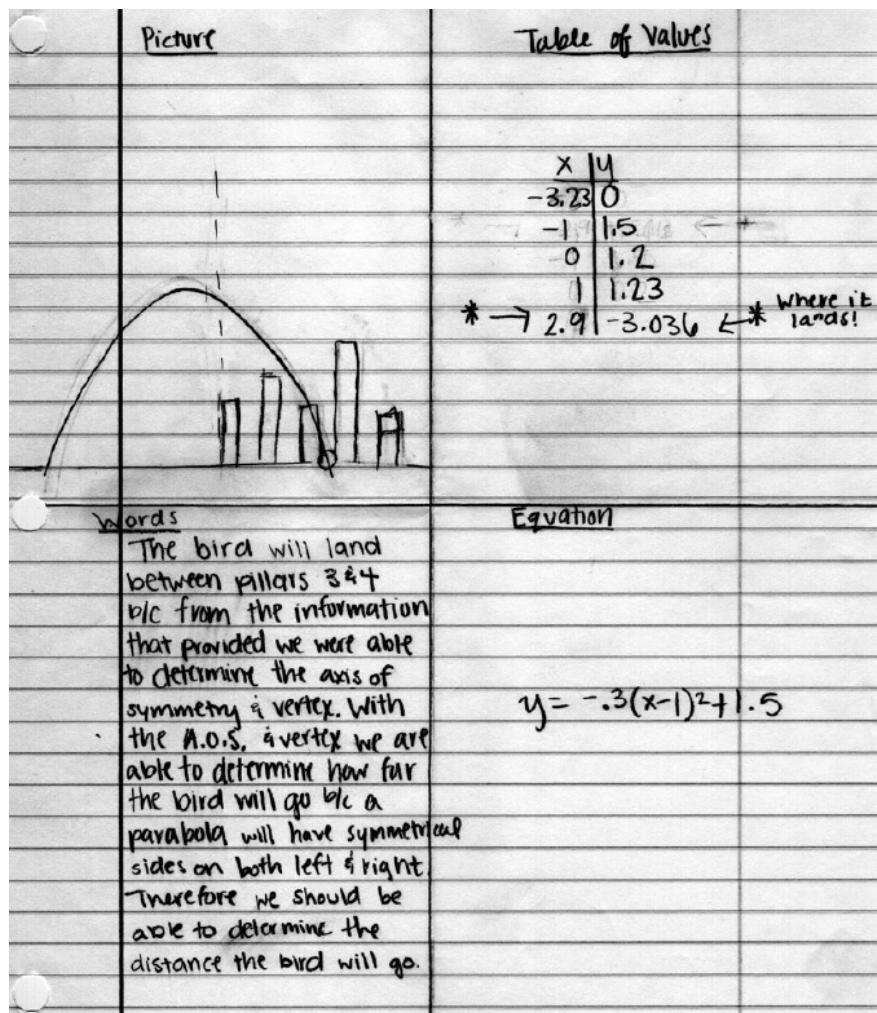 Picture
Table of Values
x y
-3.23 0
-1 1.5
0 1.2
1 1.23
* → 2.9 -3.036 ← * where it
lands!
Words
The bird will land
between pillars 3 & 4
b/c from the information
that provided we were able
to determine the axis of
symmetry & vertex. With
the A.O.S. & vertex we are
able to determine how far
the bird will go b/c a
parabola will have symmetrical
sides on both left & right.
Therefore we should be
able to determine the
distance the bird will go.
Equation
y = -.3(x-1)²+1.5